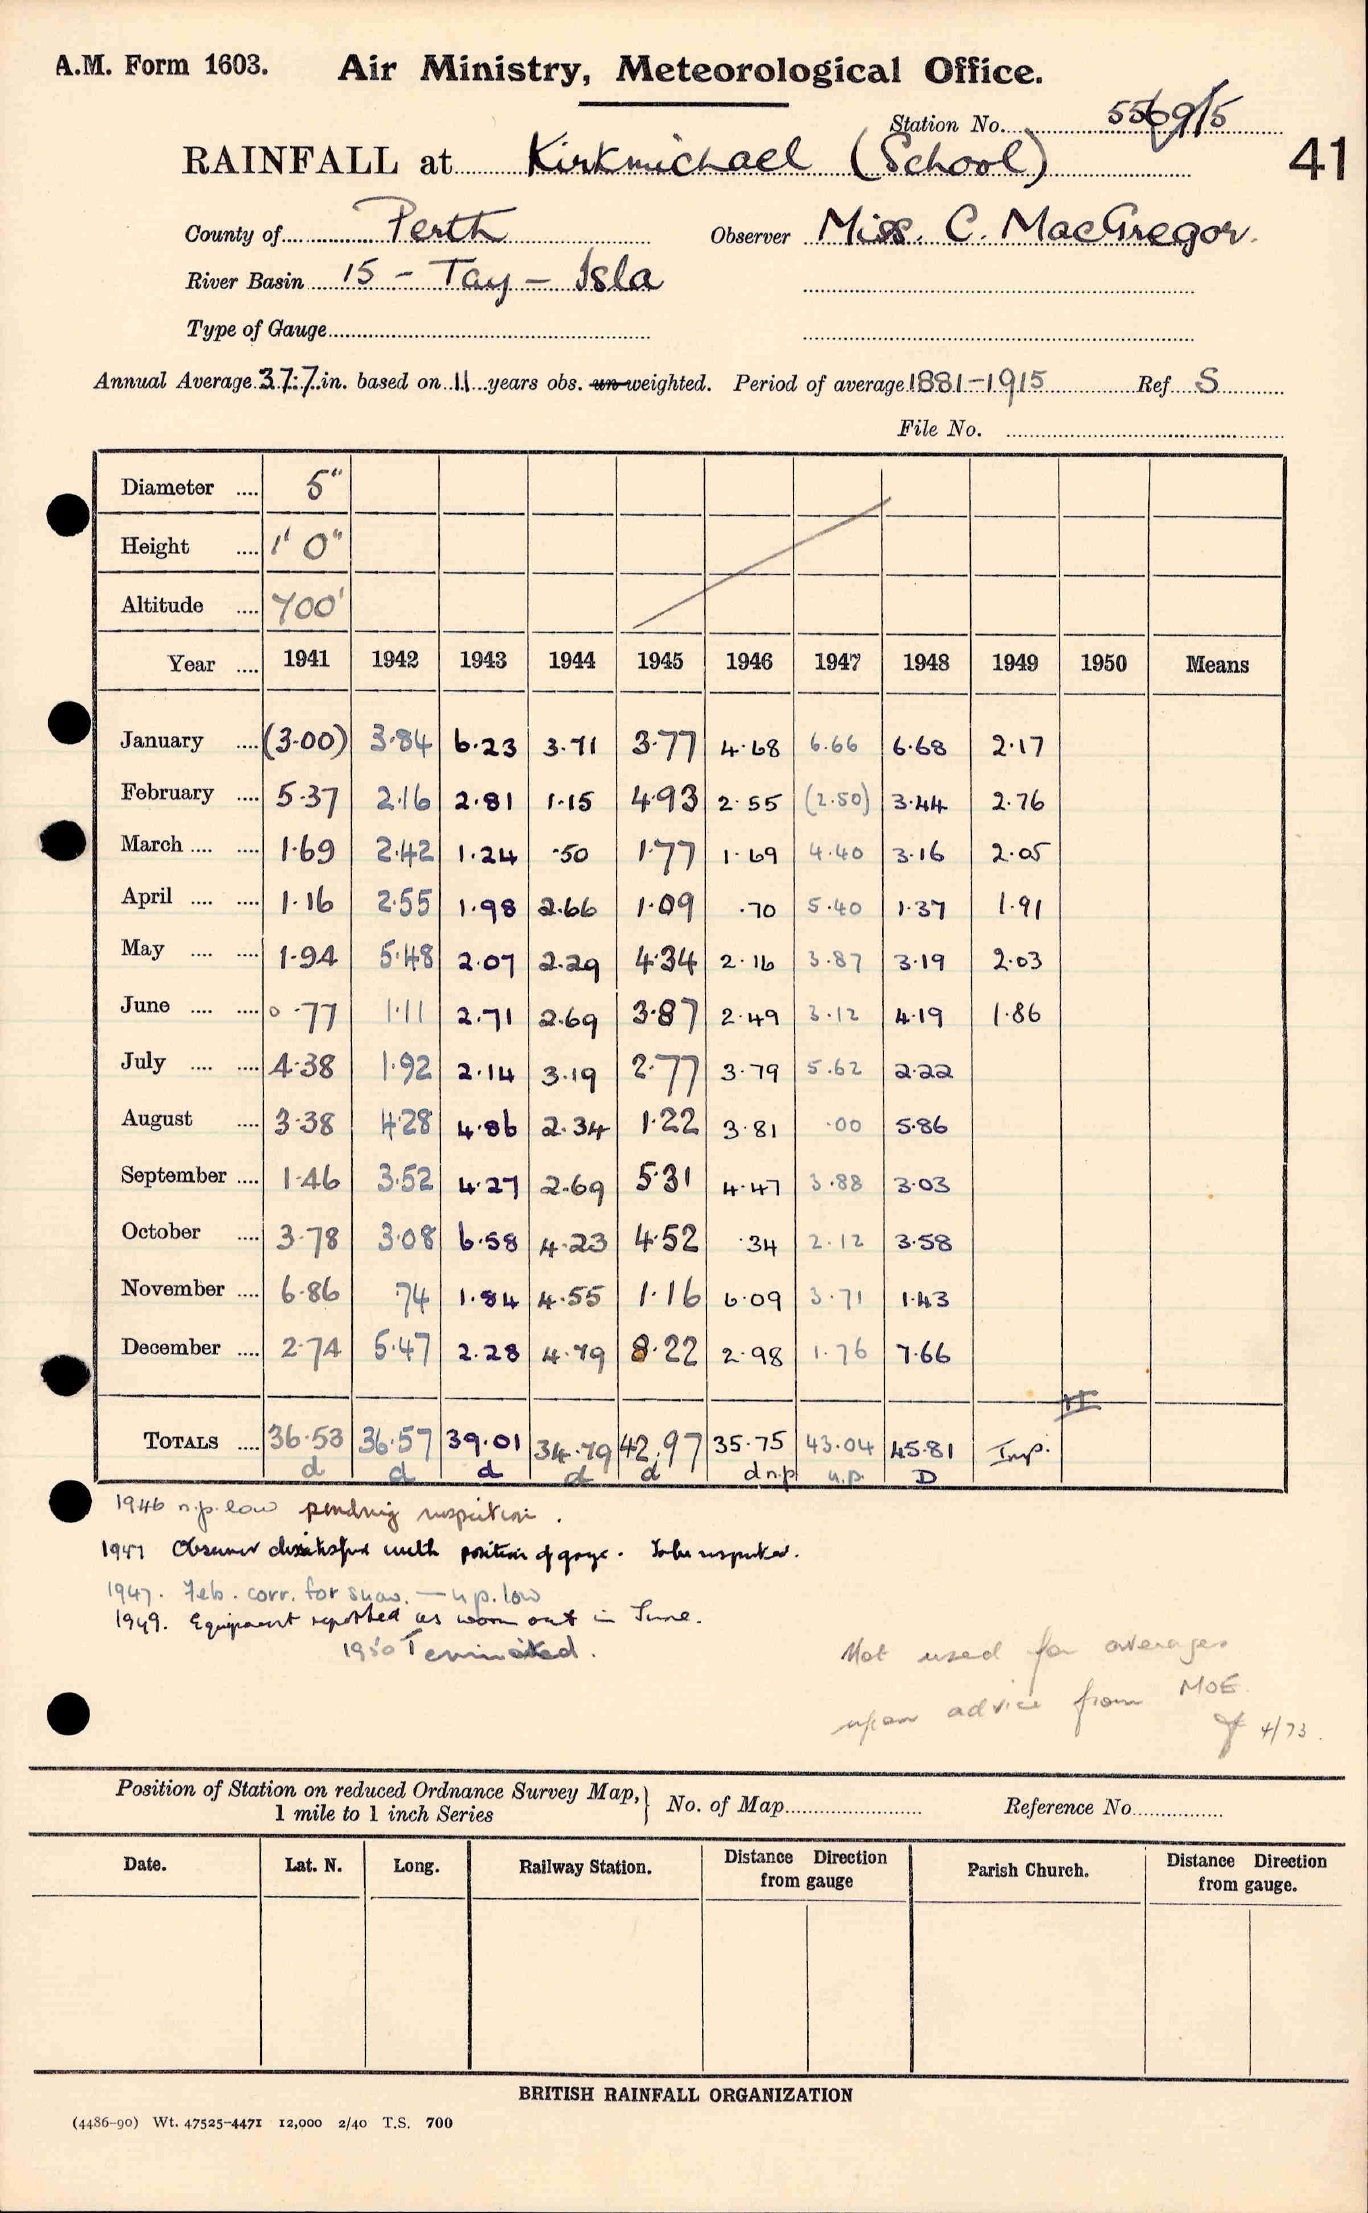 A.M. Form 1603. Air Ministry, Meteorological Office.
Station No. 5569/5
41
RAINFALL at Kirkmichael (School)
County of Perth Observer Miss. C. MacGregor.
River Basin 15 - Tay - Isla
Type of Gauge
Annual Average 37.7 in. based on 11 years obs. un-weighted. Period of average 1881-1915 Ref S
File No.
Diameter .... 5"
Height .... 1' 0"
Altitude .... 700'
Year .... 1941 1942 1943 1944 1945 1946 1947 1948 1949 1950 Means
January .... (3.00) 3.84 6.23 3.71 3.77 4.68 6.66 6.68 2.17
February .... 5.37 2.16 2.81 1.15 4.93 2.55 (2.50) 3.44 2.76
March .... .... 1.69 2.42 1.24 .50 1.77 1.69 4.40 3.16 2.05
April .... .... 1.16 2.55 1.98 2.66 1.09 .70 5.40 1.37 1.91
May .... .... 1.94 5.48 2.07 2.29 4.34 2.16 3.87 3.19 2.03
June .... .... 0.77 1.11 2.71 2.69 3.87 2.49 3.12 4.19 1.86
July .... .... 4.38 1.92 2.14 3.19 2.77 3.79 5.62 2.22
August .... 3.38 4.28 4.86 2.34 1.22 3.81 .00 5.86
September .... 1.46 3.52 4.27 2.69 5.31 4.47 3.88 3.03
October .... 3.78 3.08 6.58 4.23 4.52 .34 2.12 3.58
November .... 6.86 .74 1.84 4.55 1.16 6.09 3.71 1.43
December .... 2.74 5.47 2.28 4.79 8.22 2.98 1.76 7.66
TOTALS .... 36.53 36.57 39.01 34.79 42.97 35.75 43.04 45.81 Imp.
d d d d d d n.p n.p. D
1946 n.p. low pending inspection.
1947 Observer dissatisfied with position of gauge. To be inspected.
1947. Feb. corr. for snow. — n.p. low
1949. Equipment reported as worn out in June.
1950 Terminated.
Not used for averages
upon advice from MOE
4/73.
Position of Station on reduced Ordnance Survey Map, 1 mile to 1 inch Series } No. of Map Reference No
Date. Lat. N. Long. Railway Station. Distance Direction from gauge Parish Church. Distance Direction from gauge.
BRITISH RAINFALL ORGANIZATION
(4486-90) Wt. 47525-4471 12,000 2/40 T.S. 700